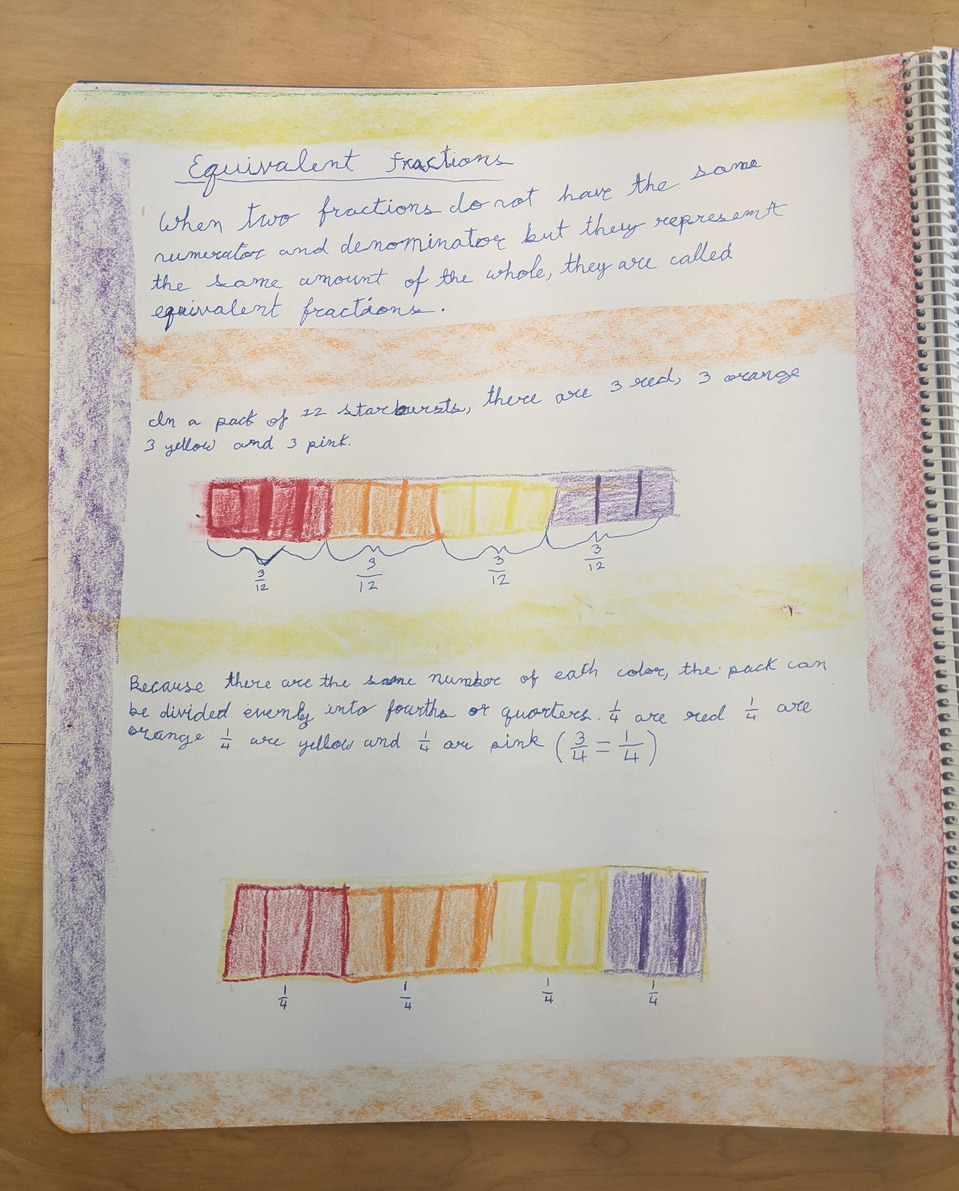 Equivalent fractions
When two fractions do not have the same
numerator and denominator but they represent
the same amount of the whole, they are called
equivalent fractions.
In a pack of 12 starbursts, there are 3 red, 3 orange
3 yellow and 3 pink.
3/12 3/12 3/12 3/12
Because there are the same number of each color, the pack can
be divided evenly into fourths or quarters. 1/4 are red 1/4 are
orange 1/4 are yellow and 1/4 are pink (3/4 = 1/4)
1/4 1/4 1/4 1/4